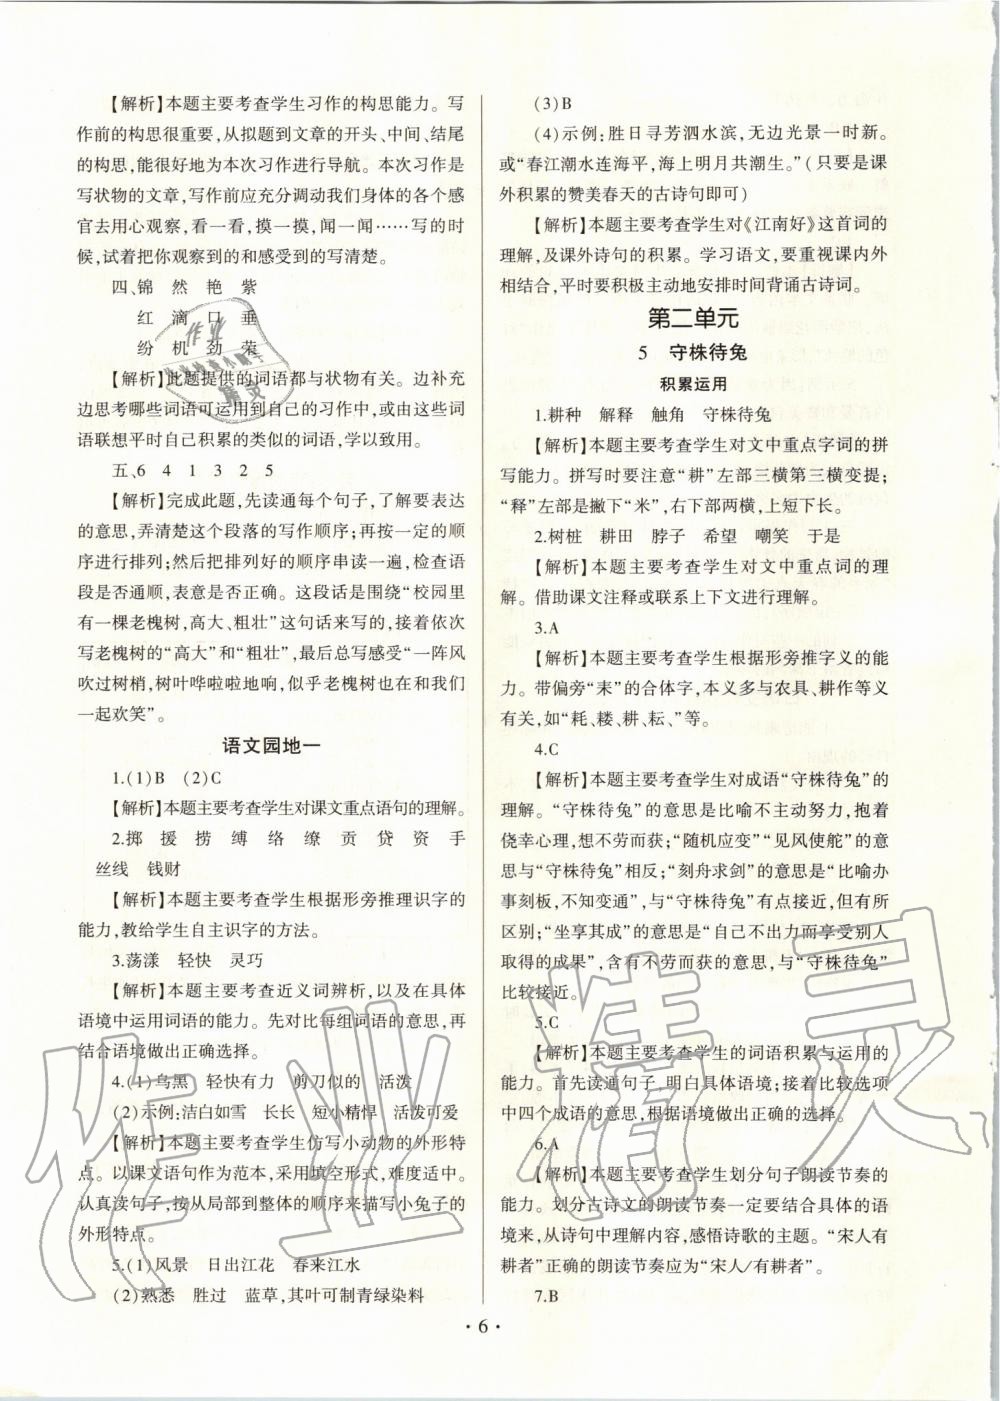 【解析】本题主要考查学生习作的构思能力。写
作前的构思很重要,从拟题到文章的开头、中间、结尾
的构思,能很好地为本次习作进行导航。本次习作是
写状物的文章,写作前应充分调动我们身体的各个感
官去用心观察,看一看,摸一摸,闻一闻……写的时
候,试着把你观察到的和感受到的写清楚。
四、锦 然 艳 紫
红 滴 口 垂
纷 机 劲 荣
【解析】此题提供的词语都与状物有关。边补充
边思考哪些词语可运用到自己的习作中,或由这些词
语联想平时自己积累的类似的词语,学以致用。
五、6 4 1 3 2 5
【解析】完成此题,先读通每个句子,了解要表达
的意思,弄清楚这个段落的写作顺序;再按一定的顺
序进行排列;然后把排列好的顺序串读一遍,检查语
段是否通顺,表意是否正确。这段话是围绕“校园里
有一棵老槐树,高大、粗壮”这句话来写的,接着依次
写老槐树的“高大”和“粗壮”,最后总写感受“一阵风
吹过树梢,树叶哗啦啦地响,似乎老槐树也在和我们
一起欢笑”。
语文园地一
1.(1)B (2)C
【解析】本题主要考查学生对课文重点语句的理解。
2.掷 援 捞 缚 络 缭 贡 贷 资 手
丝线 钱财
【解析】本题主要考查学生根据形旁推理识字的
能力,教给学生自主识字的方法。
3.荡漾 轻快 灵巧
【解析】本题主要考查近义词辨析,以及在具体
语境中运用词语的能力。先对比每组词语的意思,再
结合语境做出正确选择。
4.(1)乌黑 轻快有力 剪刀似的 活泼
(2)示例:洁白如雪 长长 短小精悍 活泼可爱
【解析】本题主要考查学生仿写小动物的外形特
点。以课文语句作为范本,采用填空形式,难度适中。
认真读句子,按从局部到整体的顺序来描写小兔子的
外形特点。
5.(1)风景 日出江花 春来江水
(2)熟悉 胜过 蓝草,其叶可制青绿染料
(3)B
(4)示例:胜日寻芳泗水滨,无边光景一时新。
或“春江潮水连海平,海上明月共潮生。”(只要是课
外积累的赞美春天的古诗句即可)
【解析】本题主要考查学生对《江南好》这首词的
理解,及课外诗句的积累。学习语文,要重视课内外
相结合,平时要积极主动地安排时间背诵古诗词。
第二单元
5 守株待兔
积累运用
1.耕种 解释 触角 守株待兔
【解析】本题主要考查学生对文中重点字词的拼
写能力。拼写时要注意“耕”左部三横第三横变提;
“释”左部是撇下“米”,右下部两横,上短下长。
2.树桩 耕田 脖子 希望 嘲笑 于是
【解析】本题主要考查学生对文中重点词的理
解。借助课文注释或联系上下文进行理解。
3.A
【解析】本题主要考查学生根据形旁推字义的能
力。带偏旁“耒”的合体字,本义多与农具、耕作等义
有关,如“耗、耧、耕、耘、”等。
4.C
【解析】本题主要考查学生对成语“守株待兔”的
理解。“守株待兔”的意思是比喻不主动努力,抱着
侥幸心理,想不劳而获;“随机应变”“见风使舵”的意
思与“守株待兔”相反;“刻舟求剑”的意思是“比喻办
事刻板,不知变通”,与“守株待兔”有点接近,但有所
区别;“坐享其成”的意思是“自己不出力而享受别人
取得的成果”,含有不劳而获的意思,与“守株待兔”
比较接近。
5.C
【解析】本题主要考查学生的词语积累与运用的
能力。首先读通句子,明白具体语境;接着比较选项
中四个成语的意思,根据语境做出正确的选择。
6.A
【解析】本题主要考查学生划分句子朗读节奏的
能力。划分古诗文的朗读节奏一定要结合具体的语
境来,从诗句中理解内容,感悟诗歌的主题。“宋人有
耕者”正确的朗读节奏应为“宋人/有耕者”。
7.B
·6·
作业精灵